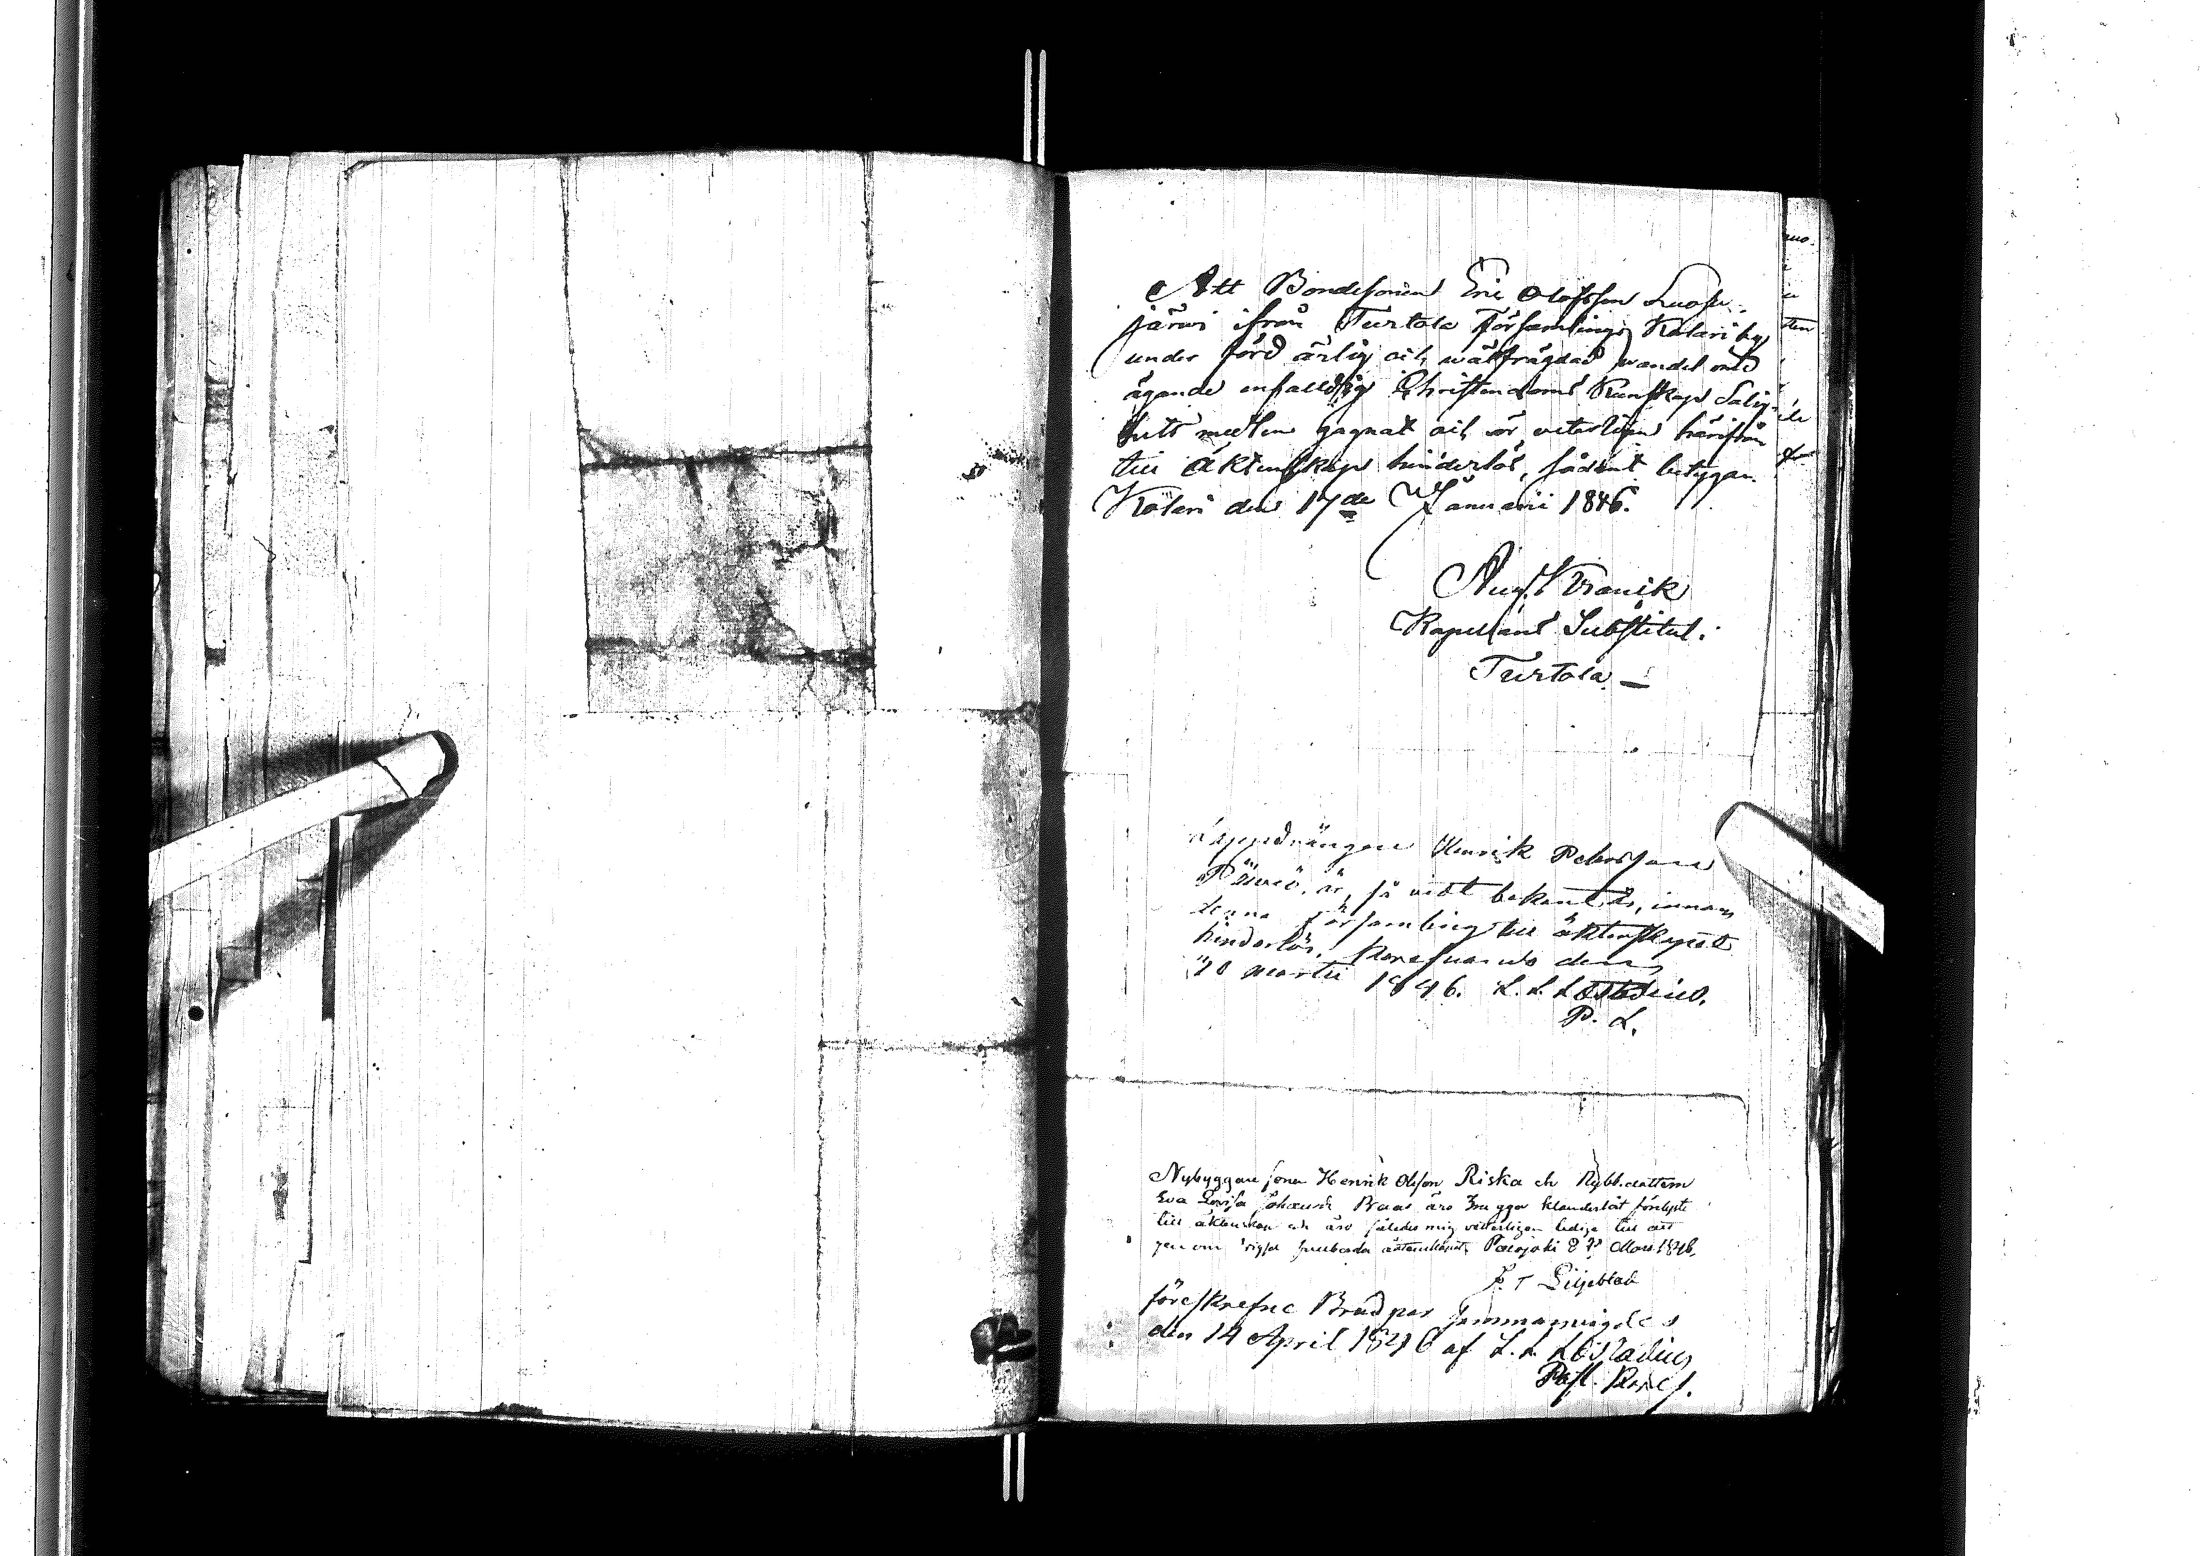 Att Bondesonen Eric Olofsson Luosu-
järwi ifrån Turtola Församlings Kolari by
under förd ärlig och wälfrägdad wandel med
ägande enfalldig Christendoms Kunskap Salig-
hets medlen gagnat och är veterligen härifrån
till Äktenskap hinderlös, sådant betygar.
Kolari den 17de Januarii 1846.
Aug. Franik
Kapellans Substitut.
Turtola
Lappdrängen Henrik Pehrsson
är, så vidt bekant är, innom
denna församling till äktenskapet
hinderlös. Karesuando den
20 Martii 1846. L. L. Læstadius.
P. L.
Nybyggare sonen Henrik Olsson Riska och Nybb.dottern
Eva Lovisa Johansd. äro 3ne ggor klanderlöst förelyste
till äktenskap och äro således mig vetterligen lediga till att
genom vigsel fullborda äktenskapet, Parojoki 8 Mars 1846.
Liljeblad
föreskrefne Brudpar sammanvigdes
den 14 April 1846 af L. L. Læstadius
Past. Kares.